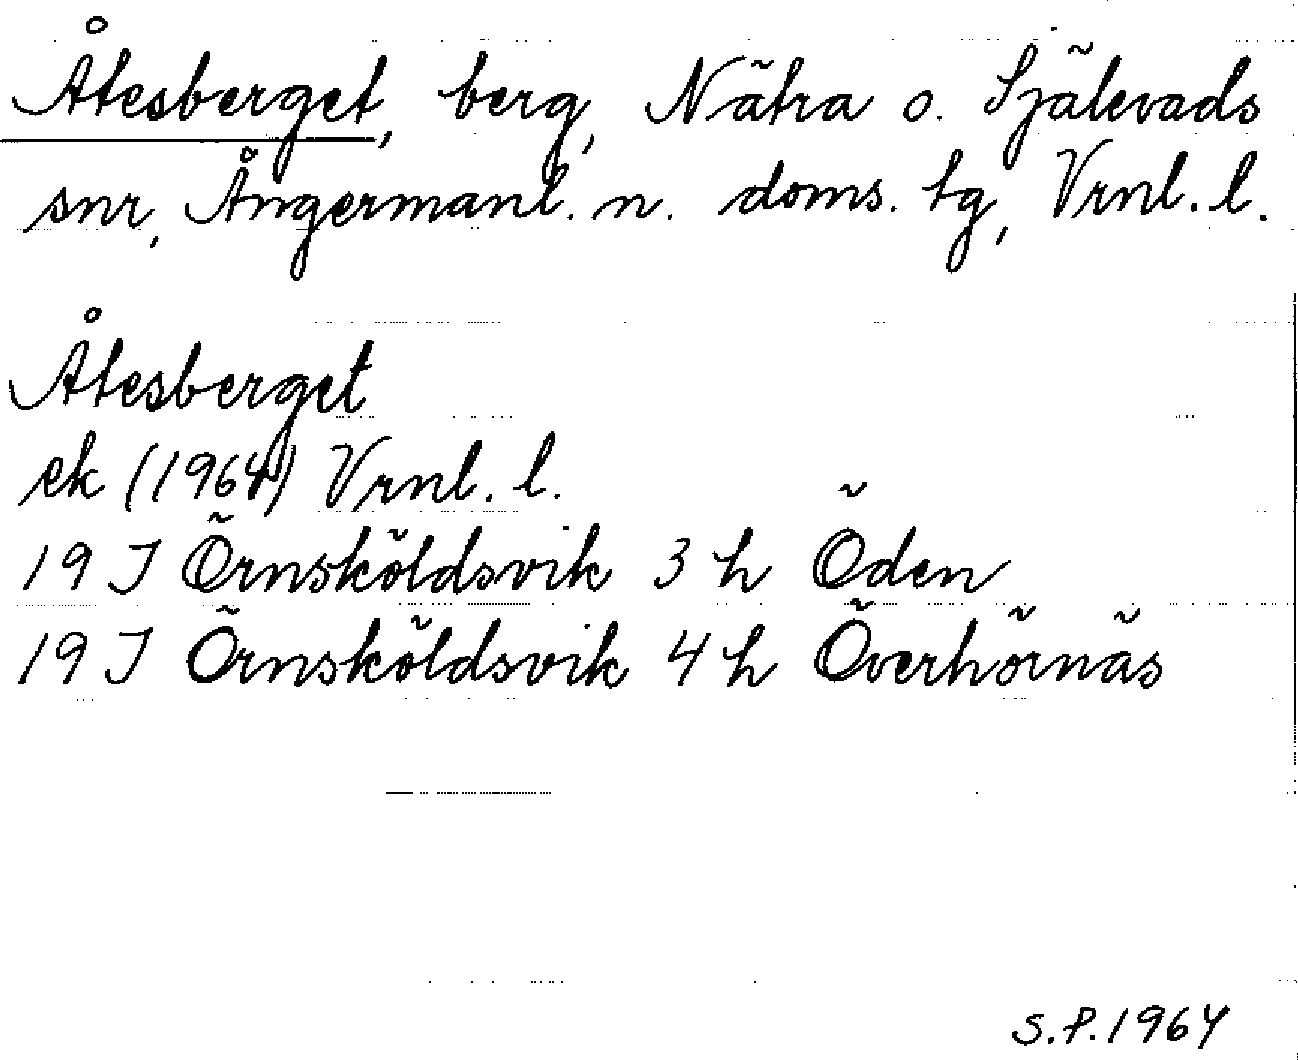 Åtesberget, berg, Nätra o. Själevads
snr, Ångermanl. n. doms. tg, Vrnl. l.
Åtesberget
ek (1964) Vrnl. l.
19 J Örnsköldsvik 3 h Öden
19 J Örnsköldsvik 4 h Överhörnäs
S.P. 1964